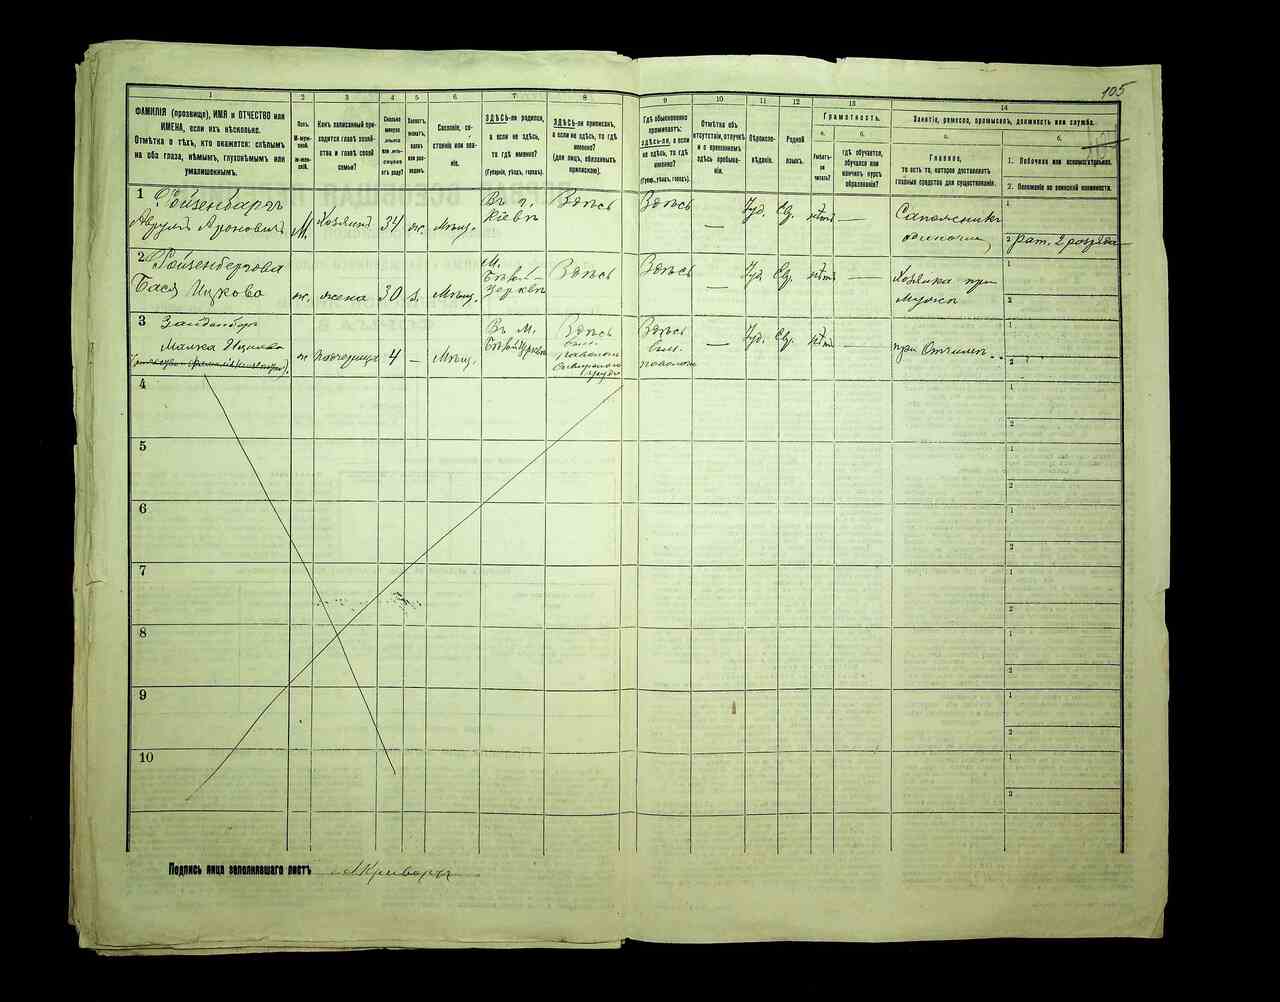 105
1
2
3
4
5
6
7
8
9
10
11
12
13
14
ФАМИЛІЯ (прозвище), ИМЯ и ОТЧЕСТВО или
ИМЕНА, если ихъ нѣсколько.
Отмѣтка о тѣхъ, кто окажется: слѣпымъ
на оба глаза, нѣмымъ, глухонѣмымъ или
умалишеннымъ.
Полъ.
М-муж-
ской.
ж-жен-
скій.
Какъ записанный при-
ходится главѣ хозяй-
ства и главѣ своей
семьи?
Сколько
минуло
лѣтъ
или мѣ-
сяцевъ
отъ роду?
Холостъ,
женатъ,
вдовъ
или раз-
веденъ
Сословіе, со-
стояніе или зва-
ніе.
ЗДѢСЬ-ли родился,
а если не здѣсь,
то гдѣ именно?
(Губернія, уѣздъ, городъ).
ЗДѢСЬ-ли приписанъ,
а если не здѣсь, то гдѣ
именно?
(Для лицъ, обязанныхъ
припискою).
Гдѣ обыкновенно
проживаетъ:
здѣсь-ли, а если
не здѣсь, то гдѣ
именно?
(Губ., уѣздъ, городъ).
Отмѣтка объ
отсутствіи, отлучкѣ
и о временномъ
здѣсь пребыва-
ніи.
Вѣроиспо-
вѣданіе.
Родной
языкъ.
Грамотность.
а.
Умѣетъ-
ли
читать?
б.
гдѣ обучается,
обучался или
кончилъ курсъ
образованія?
Занятіе, ремесло, промыселъ, должность или служба.
а.
Главное,
то есть то, которое доставляетъ
главныя средства для существованія.
б.
1. Побочное или вспомогательное.
2. Положеніе по воинской повинности.
1 Ройзенбергъ
Аврумъ Ароновичъ
М.
Хозяинъ
34
ж.
Мѣщ.
Въ г.
Кіевѣ
Здѣсь
Здѣсь
—
Іуд.
Евр.
нѣтъ
—
Сапожникъ
одиночка
1
2 рат. 2 разряда
2 Ройзенбергова
Бася Ицкова
ж.
жена
30
Мѣщ.
М.
Бѣлой-
Церкви
Здѣсь
Здѣсь
—
Іуд.
Евр.
нѣтъ
—
Хозяйка при
мужѣ
1
2
3
Малка
ж
падчерица
4
—
Мѣщ.
Въ М.
Бѣлой Церкви
Здѣсь
Здѣсь
—
Іуд.
Евр.
нѣтъ
—
при Отчимѣ
1
2
4
1
2
5
1
2
6
1
2
7
1
2
8
1
2
9
1
2
10
1
2
Подпись лица заполнявшаго листъ